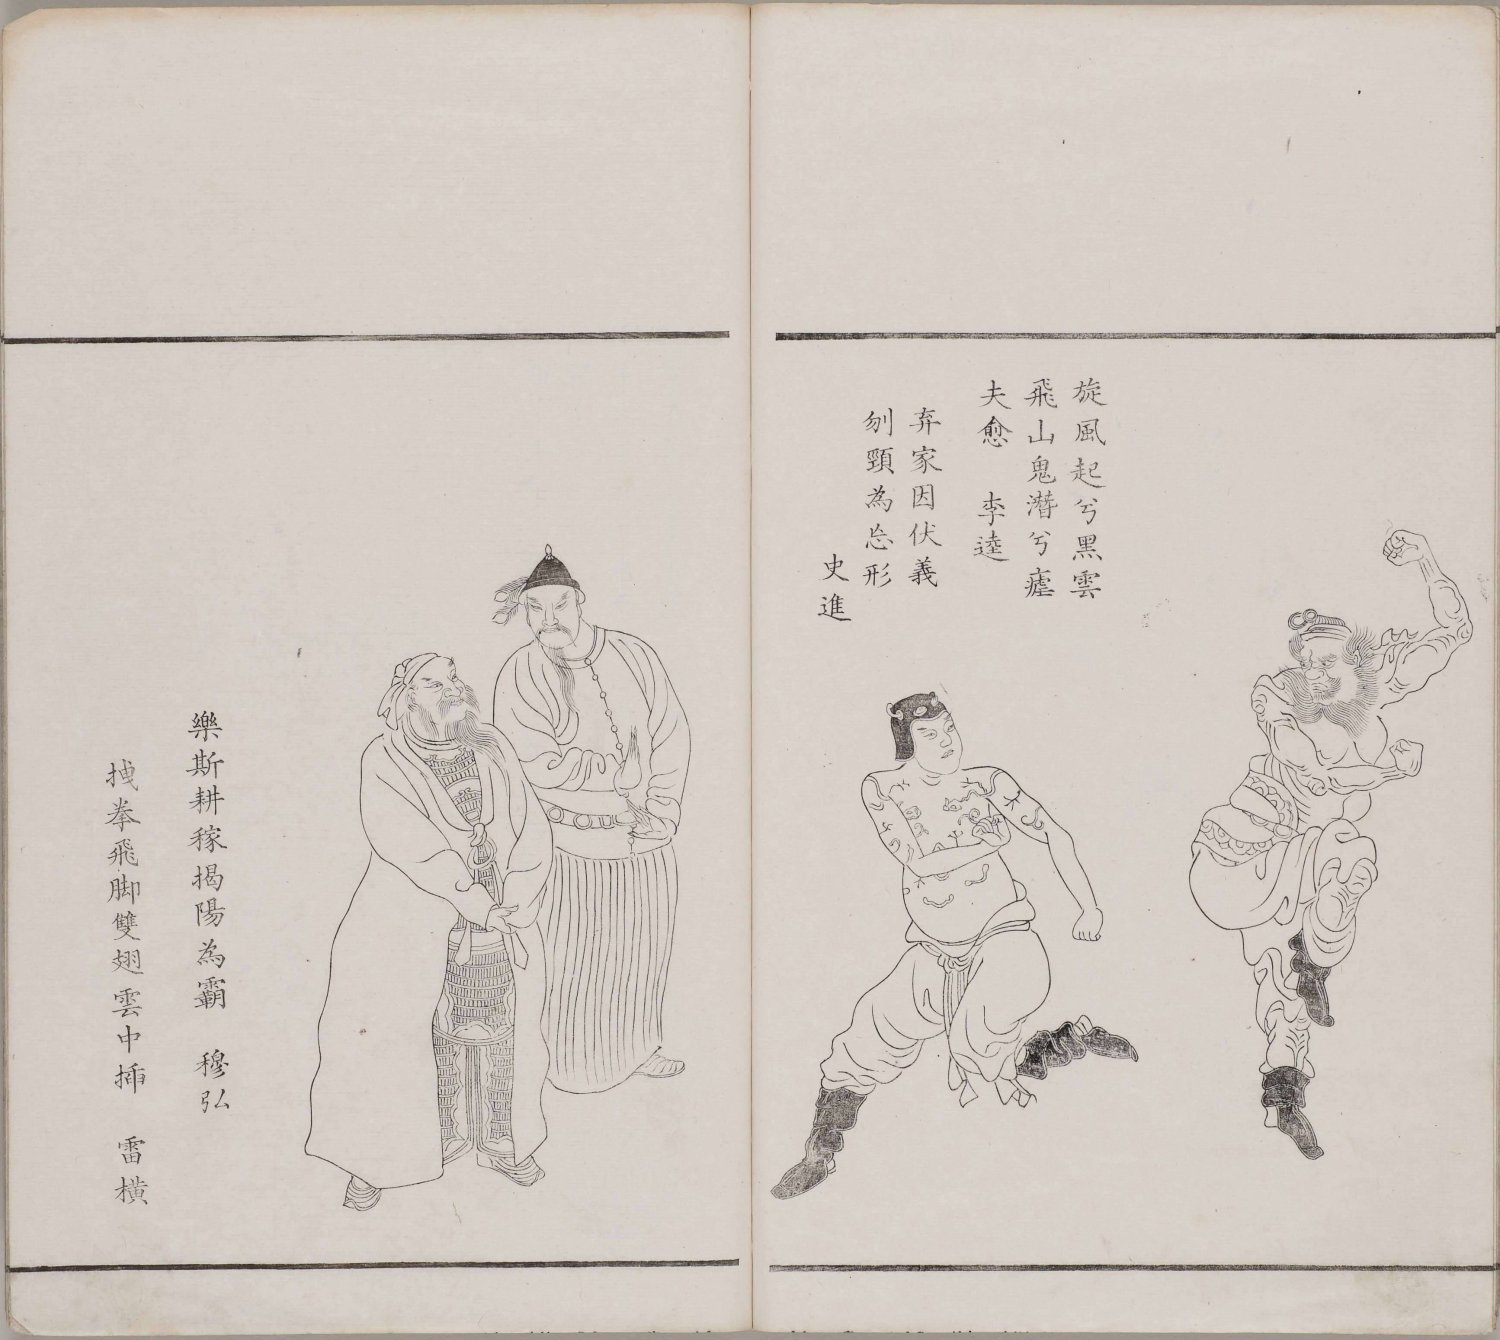 旋風起兮黑雲
飛山鬼潛兮瘧
夫愈　李逵
弃家因伏義
刎頸為忘形
史進
樂斯耕稼揭陽為霸　穆弘
拽拳飛脚雙翅雲中揷　雷橫